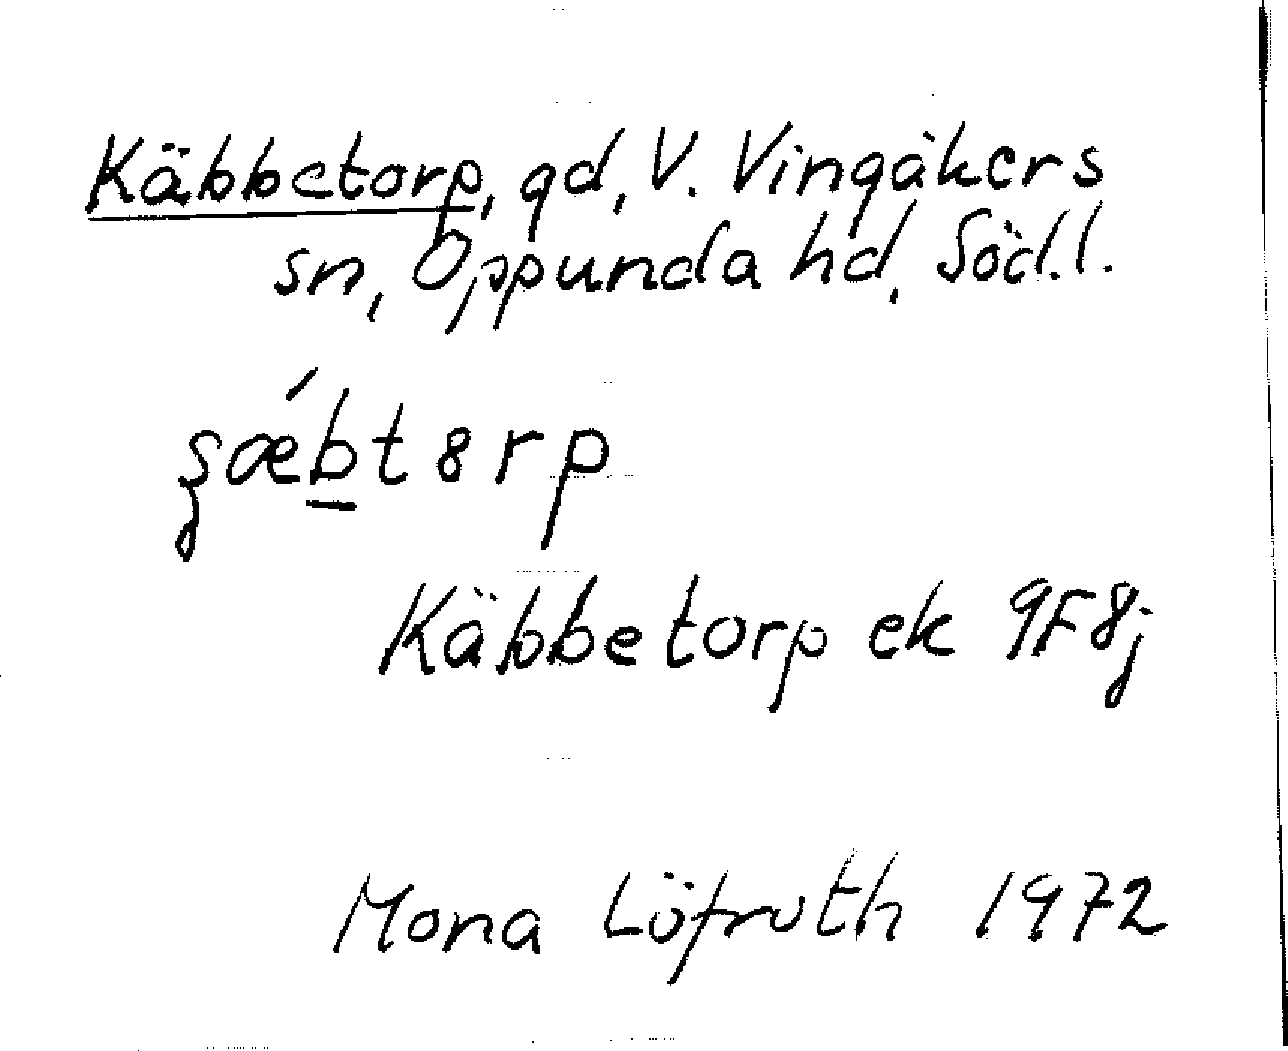 Käbbetorp, gd, V. Vingåkers
sn, Oppunda hd, Södl.l.
Käbbetorp ek 9F8j
Mona Löfroth 1972